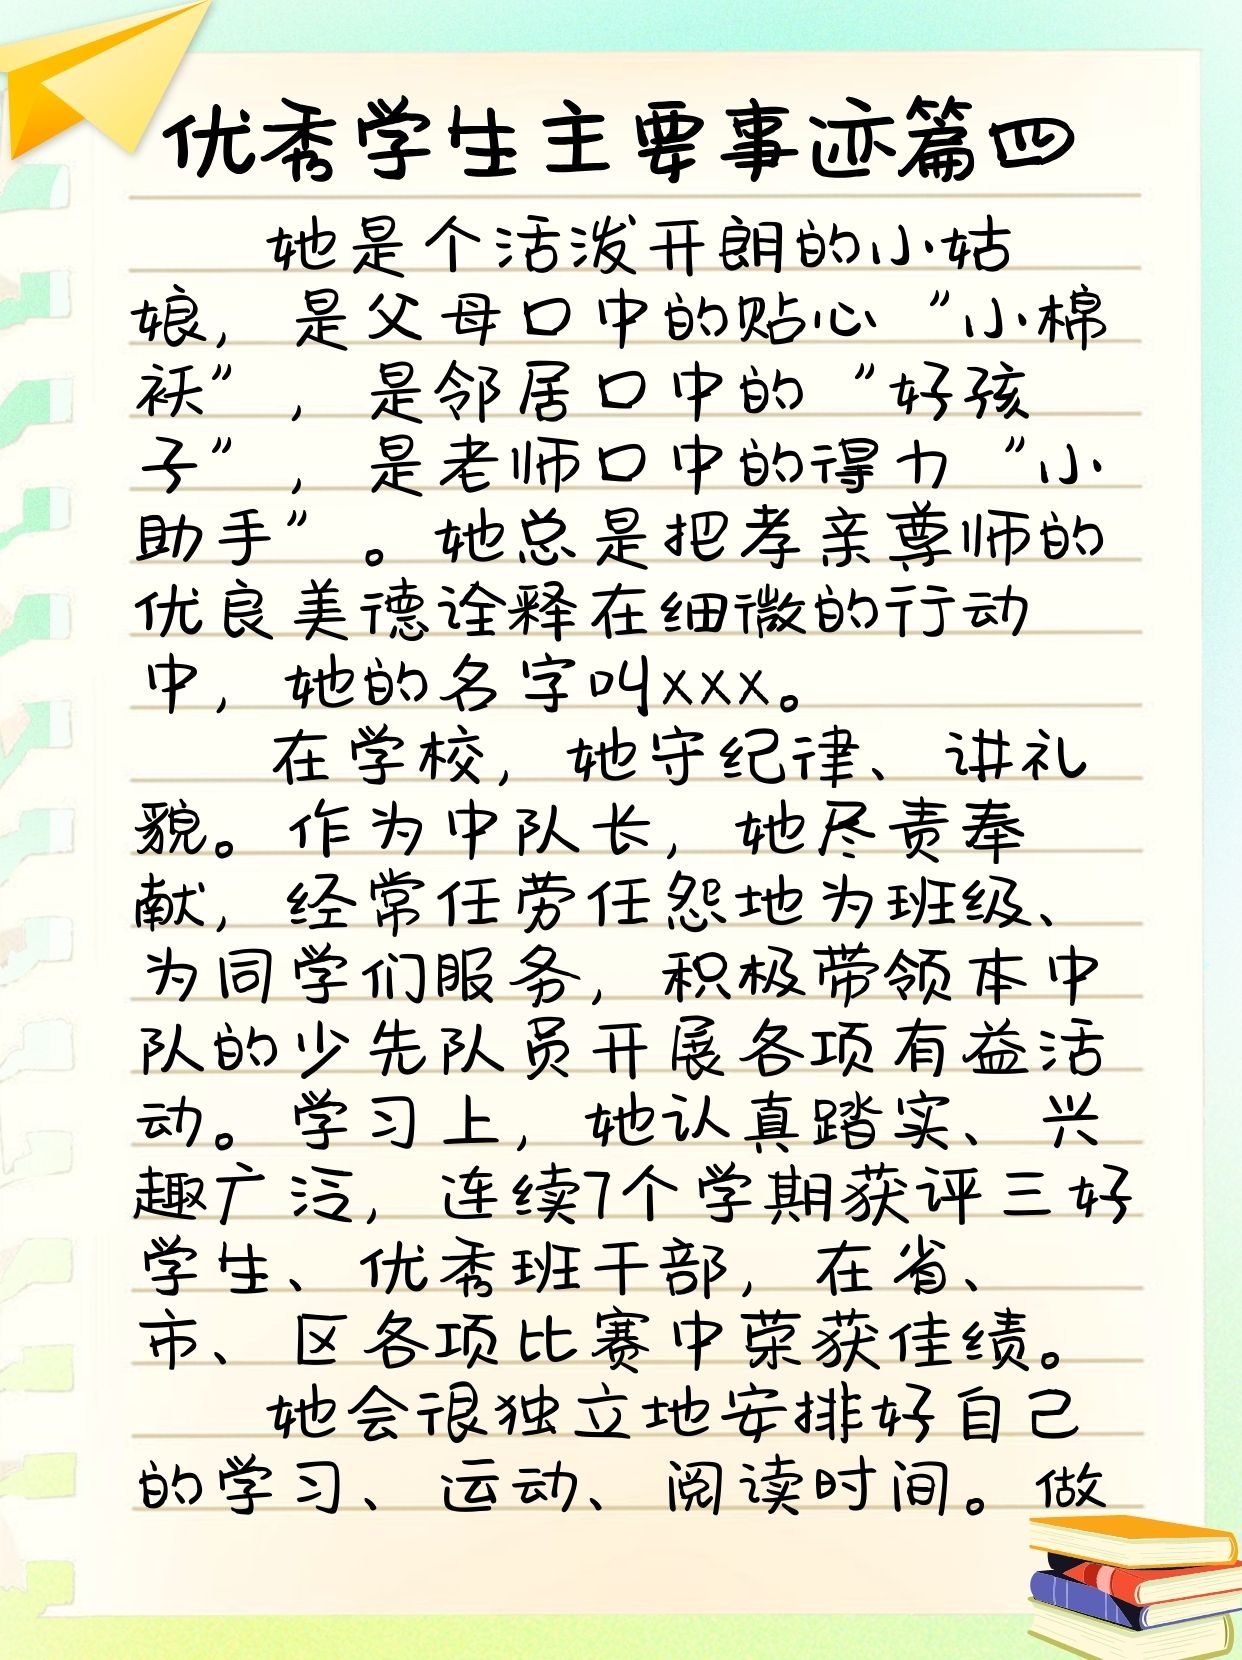 优秀学生主要事迹篇四
她是个活泼开朗的小姑
娘，是父母口中的贴心“小棉
袄”，是邻居口中的“好孩
子”，是老师口中的得力“小
助手”。她总是把孝亲尊师的
优良美德诠释在细微的行动
中，她的名字叫xxx。
在学校，她守纪律、讲礼
貌。作为中队长，她尽责奉
献，经常任劳任怨地为班级、
为同学们服务，积极带领本中
队的少先队员开展各项有益活
动。学习上，她认真踏实、兴
趣广泛，连续7个学期获评三好
学生、优秀班干部，在省、
市、区各项比赛中荣获佳绩。
她会很独立地安排好自己
的学习、运动、阅读时间。做